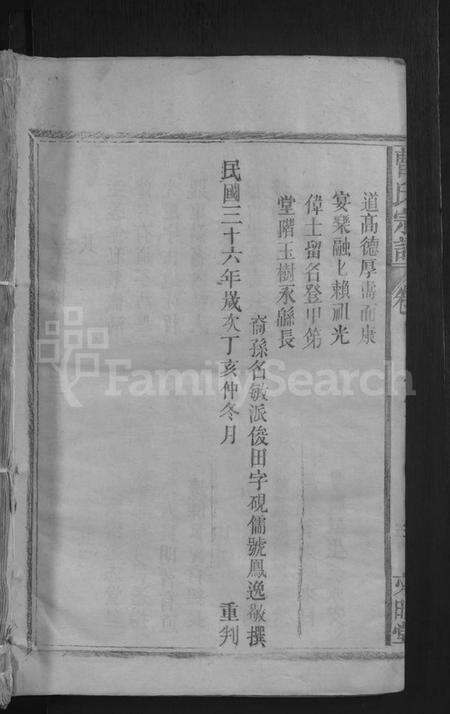 曹氏宗譜 卷
道高德厚壽而康
宴樂融融賴祖光
偉士留名登甲第
堂階玉樹永緜長
裔孫名敏派俊田字硯儒號鳳逸敬撰
民國三十六年歲次丁亥仲冬月 重刊
FamilySearch